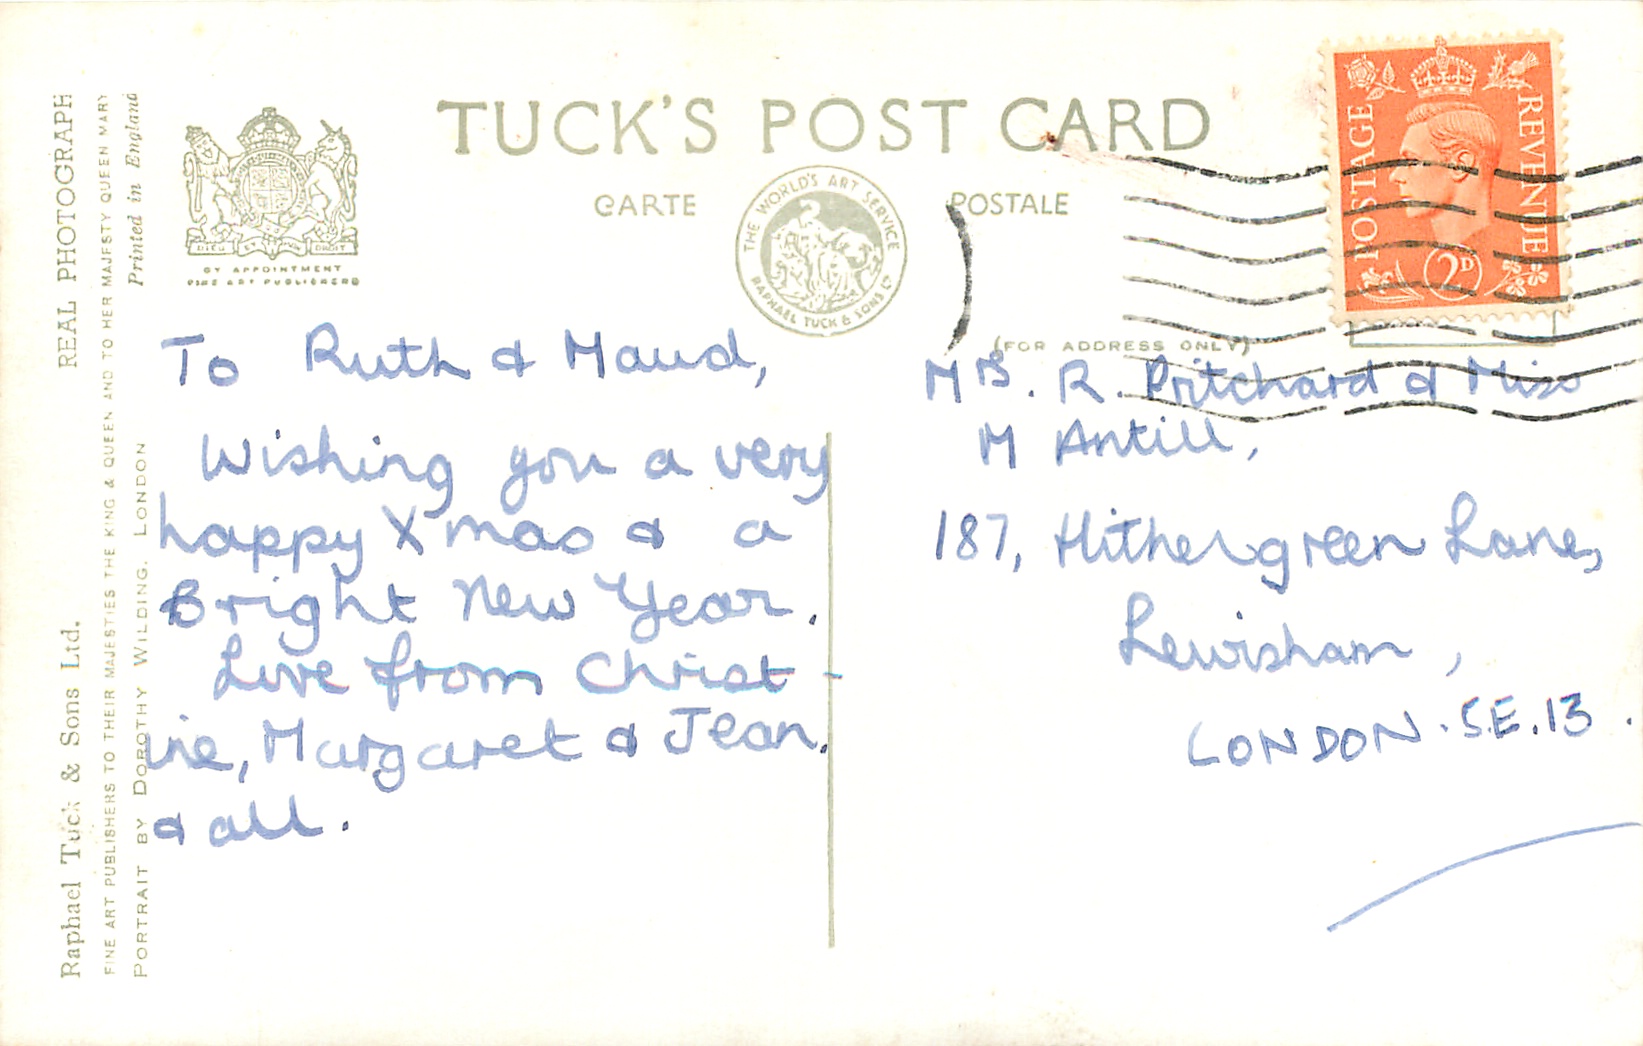 TUCK'S POST CARD
CARTE POSTALE
THE WORLD'S ART SERVICE
RAPHAEL TUCK & SONS LD
DIEU ET MON DROIT
BY APPOINTMENT
FINE ART PUBLISHERS
(FOR ADDRESS ONLY)
POSTAGE
REVENUE
2D
Raphael Tuck & Sons Ltd. REAL PHOTOGRAPH
FINE ART PUBLISHERS TO THEIR MAJESTIES THE KING & QUEEN AND TO HER MAJESTY QUEEN MARY
PORTRAIT BY DOROTHY WILDING, LONDON Printed in England
To Ruth & Maud,
Wishing you a very
happy Xmas & a
Bright New Year.
Love from Christ-
ine, Margaret & Jean.
& all.
Mrs. R. Pritchard & Miss
M Antill,
187, Hithergreen Lane,
Lewisham,
LONDON. S.E.13.